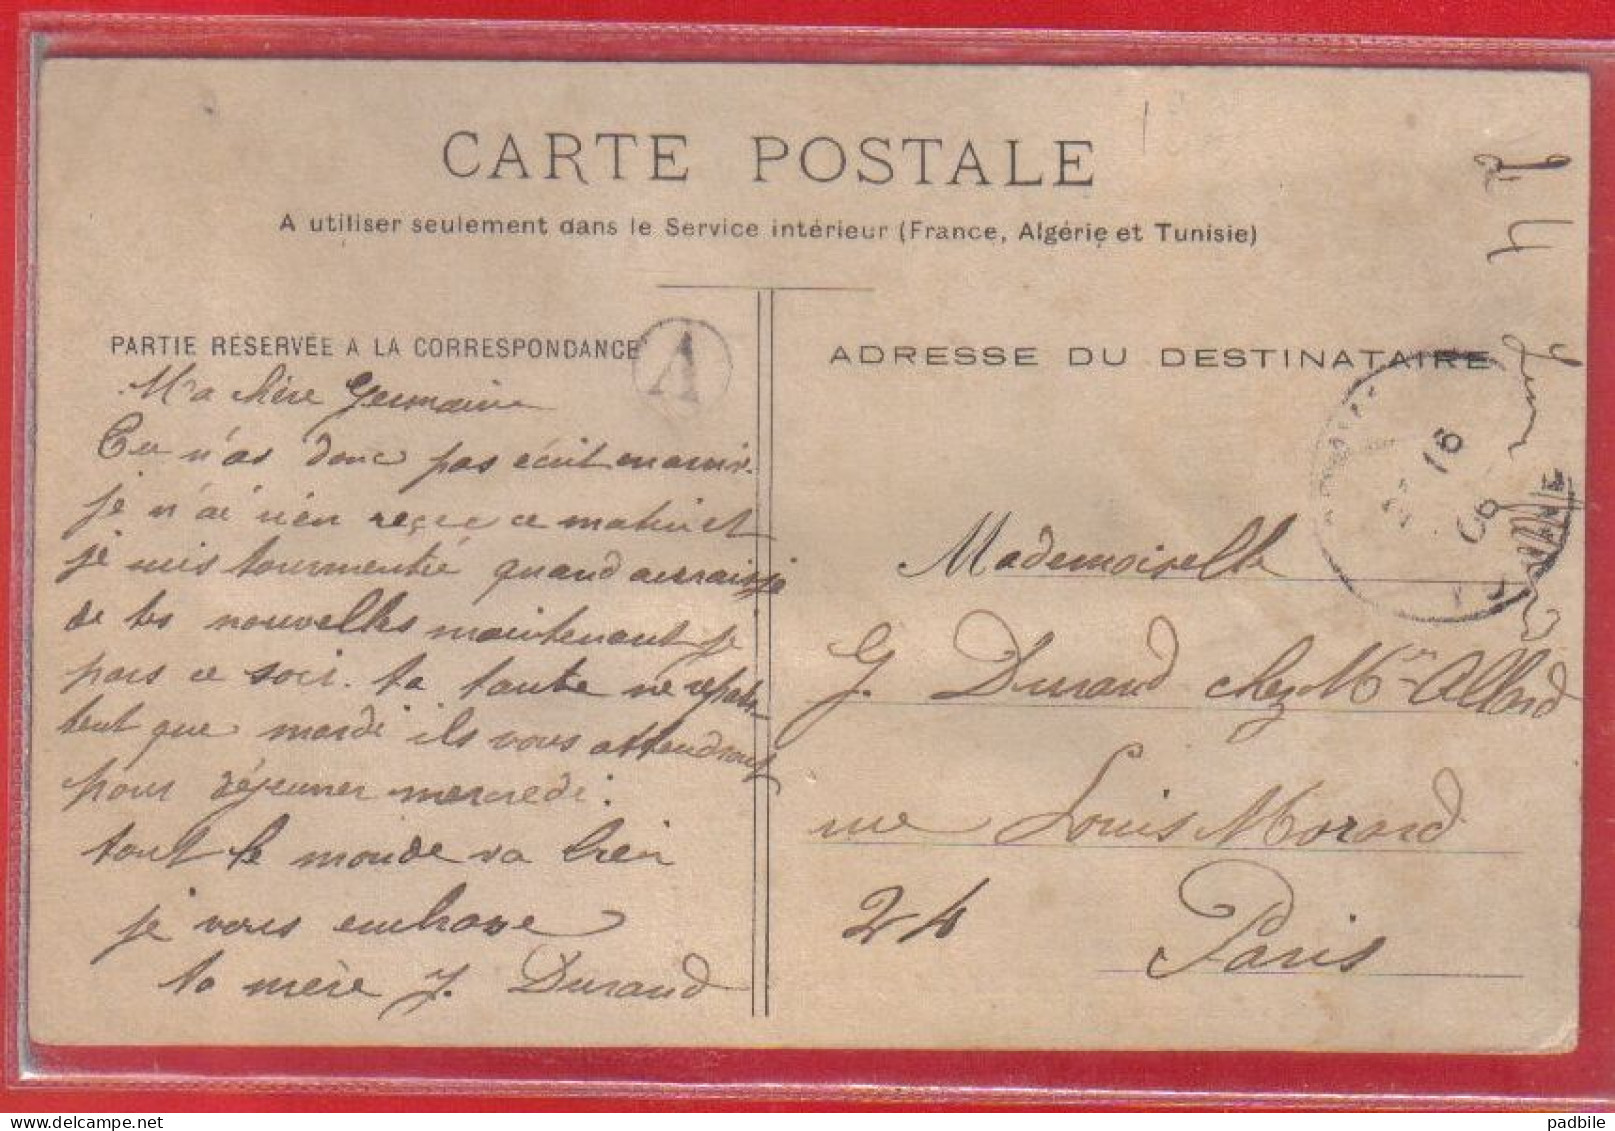 CARTE POSTALE
A utiliser seulement dans le Service intérieur (France, Algérie et Tunisie)
PARTIE RÉSERVÉE A LA CORRESPONDANCE
A
Ma chère Germaine
Tu n'as donc pas écrit
je n'ai rien reçue ce matin et
je suis tourmentée quand aurais je
de tes nouvelles maintenant je
pars ce soir. ta tante ne
tent que mardi ils vous attendront
pour déjeuner mercredi.
tout le monde va bien
je vous embrasse
ta mère J. Durand
ADRESSE DU DESTINATAIRE
16
06
Mademoiselle
G. Durand chez Mr Allard
rue Louis Morard
24 Paris
24
padbile